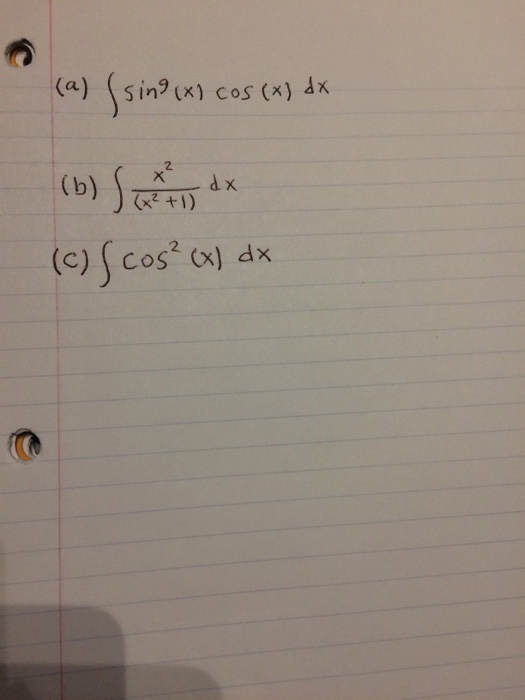 (a) ∫ sin⁹(x) cos(x) dx
(b) ∫ x²/(x²+1) dx
(c) ∫ cos²(x) dx